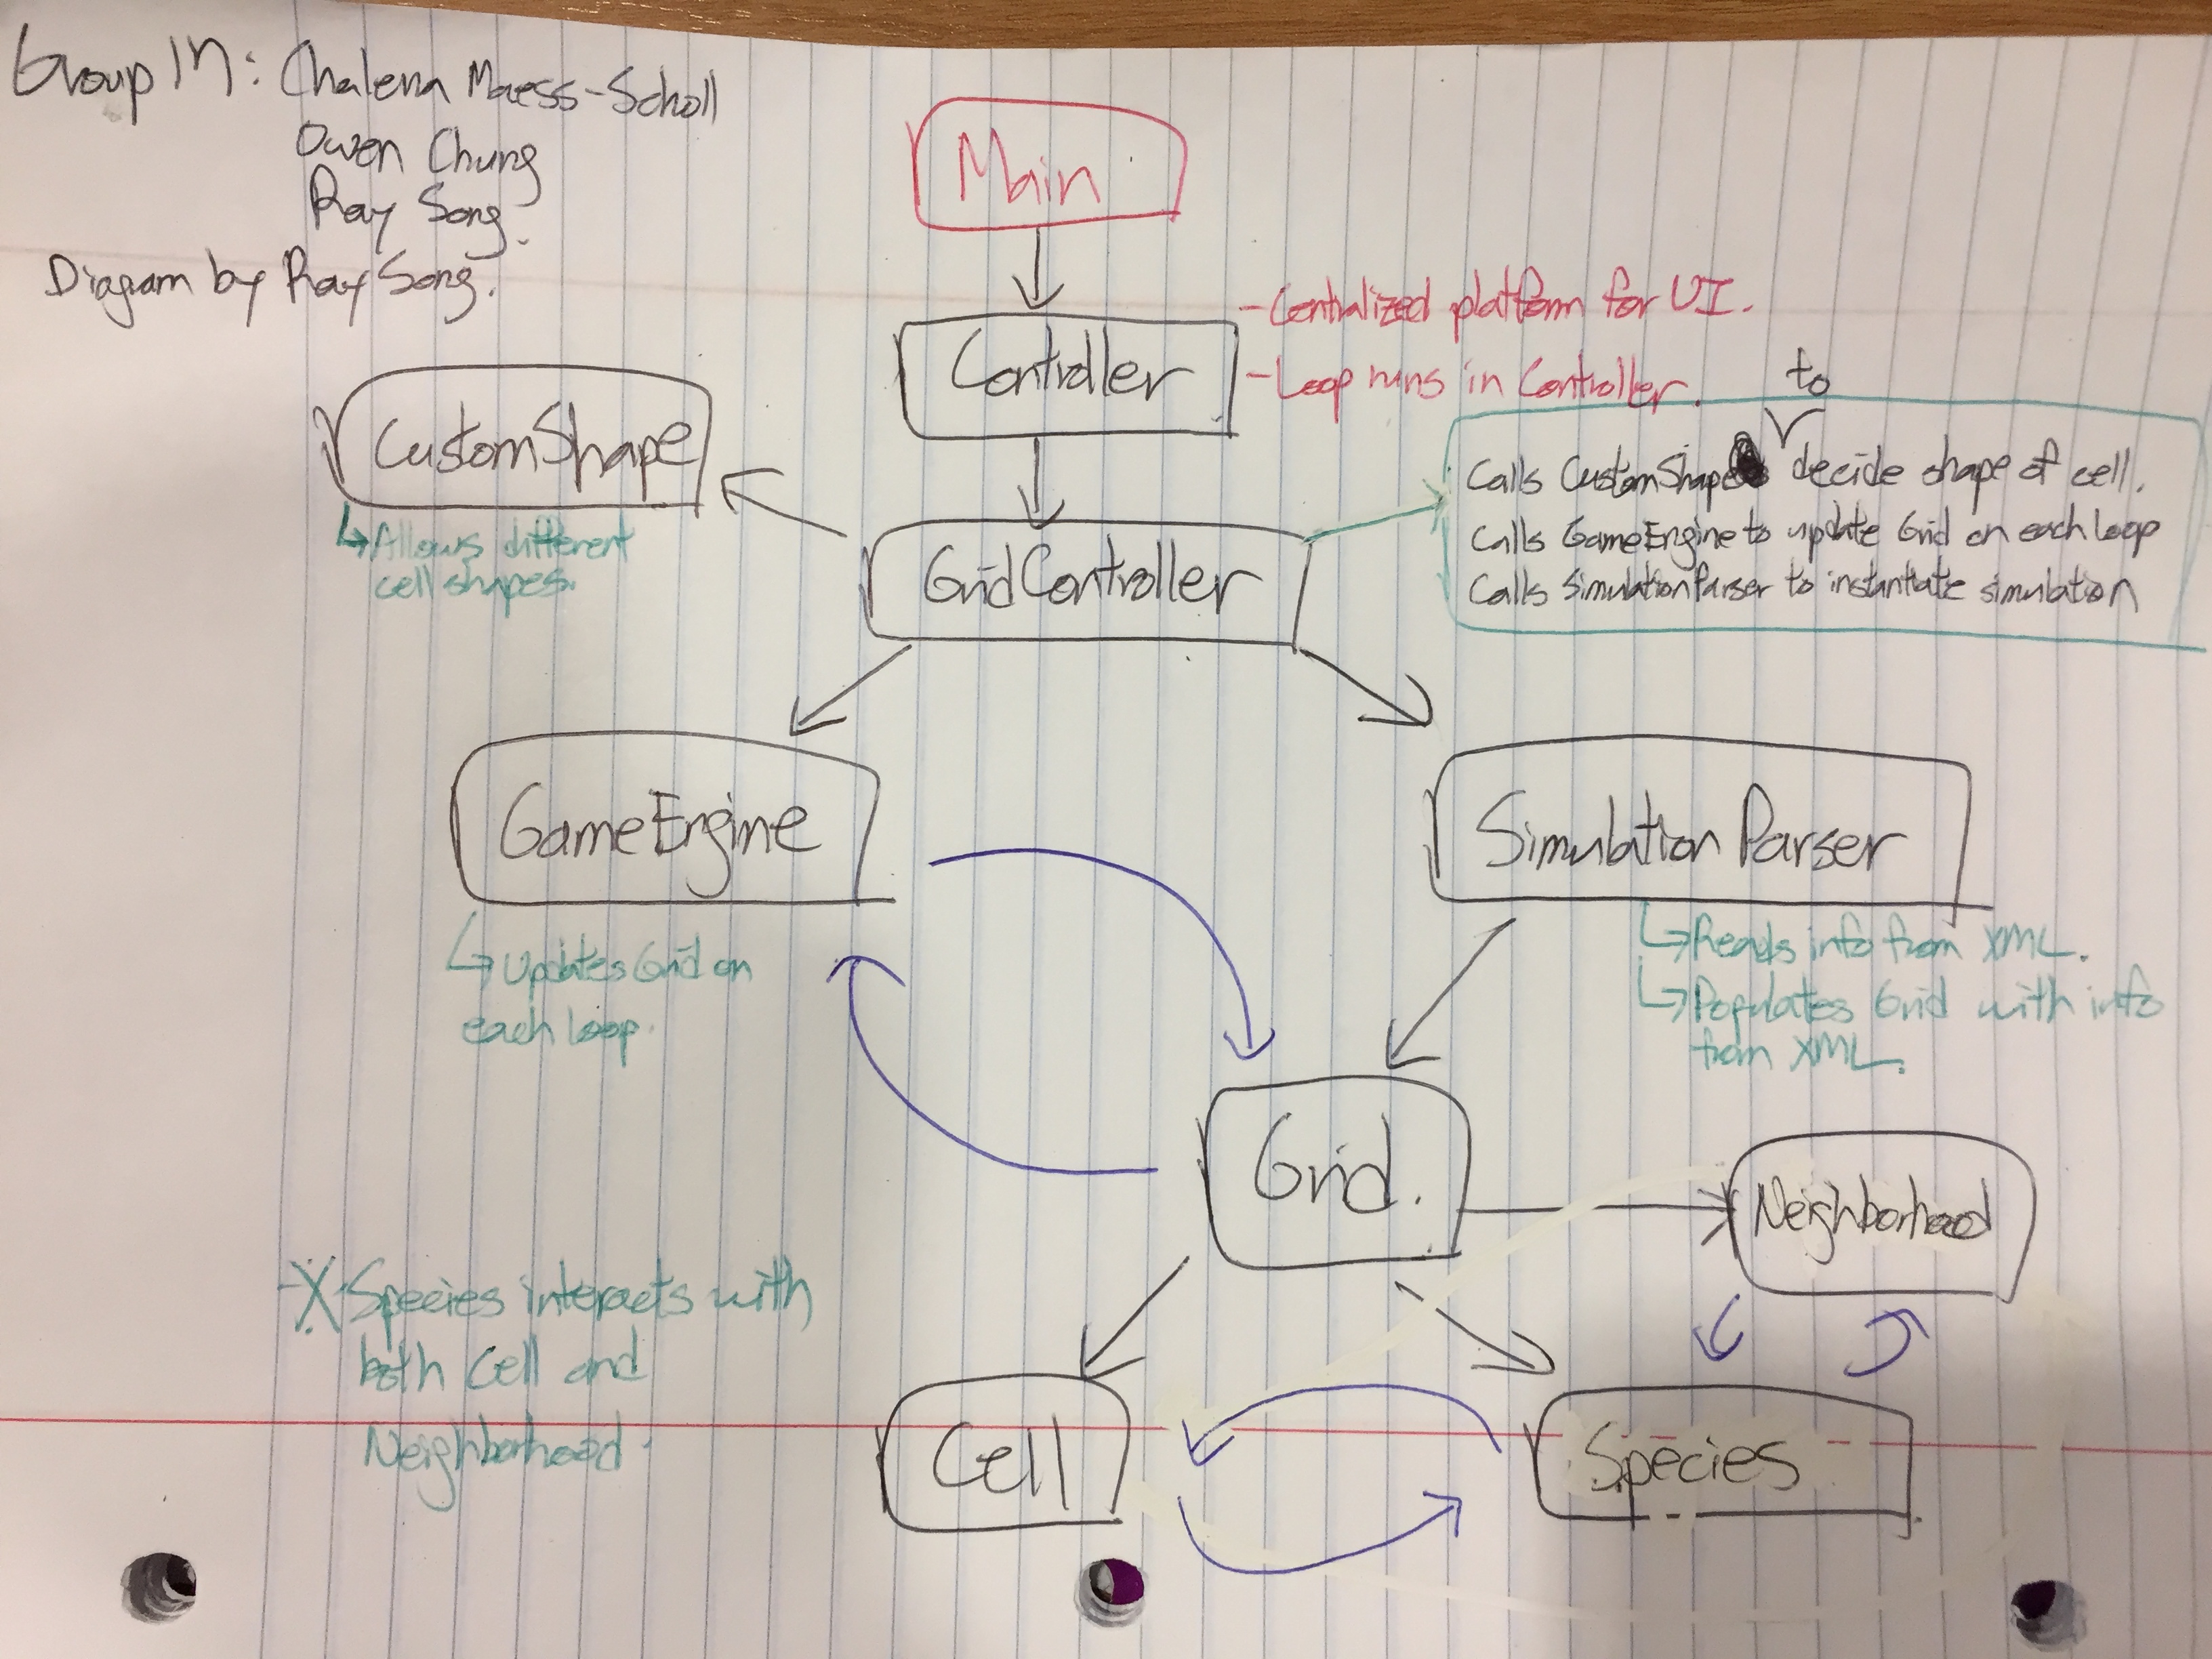 Group 17: Chalena Maess-Scholl
Owen Chung
Ray Song.
Diagram by Ray Song.
Main
Controller
-Centralized platform for UI.
-Loop runs in Controller.
GridController
to
Calls CustomShape decide shape of cell.
Calls GameEngine to update Grid on each loop
Calls SimulationParser to instantiate simulation
CustomShape
↳Allows different
cell shapes.
GameEngine
↳Updates Grid on
each loop.
Simulation Parser
↳Reads info from XML.
↳Populates Grid with info
from XML.
Grid.
Neighborhood
Cell
Species
-X Species interacts with
both Cell and
Neighborhood.